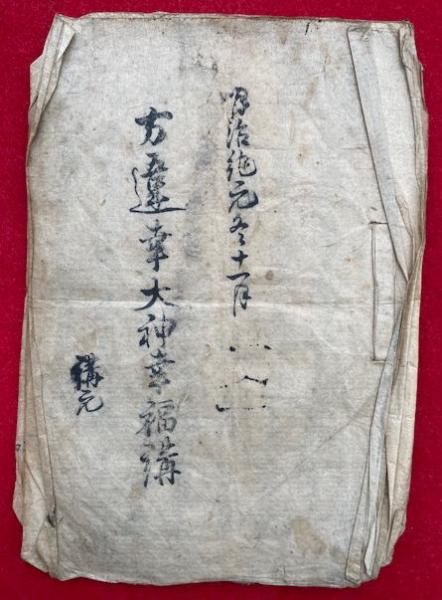 明治紀元冬十一月
方違幸大神幸福講
講元